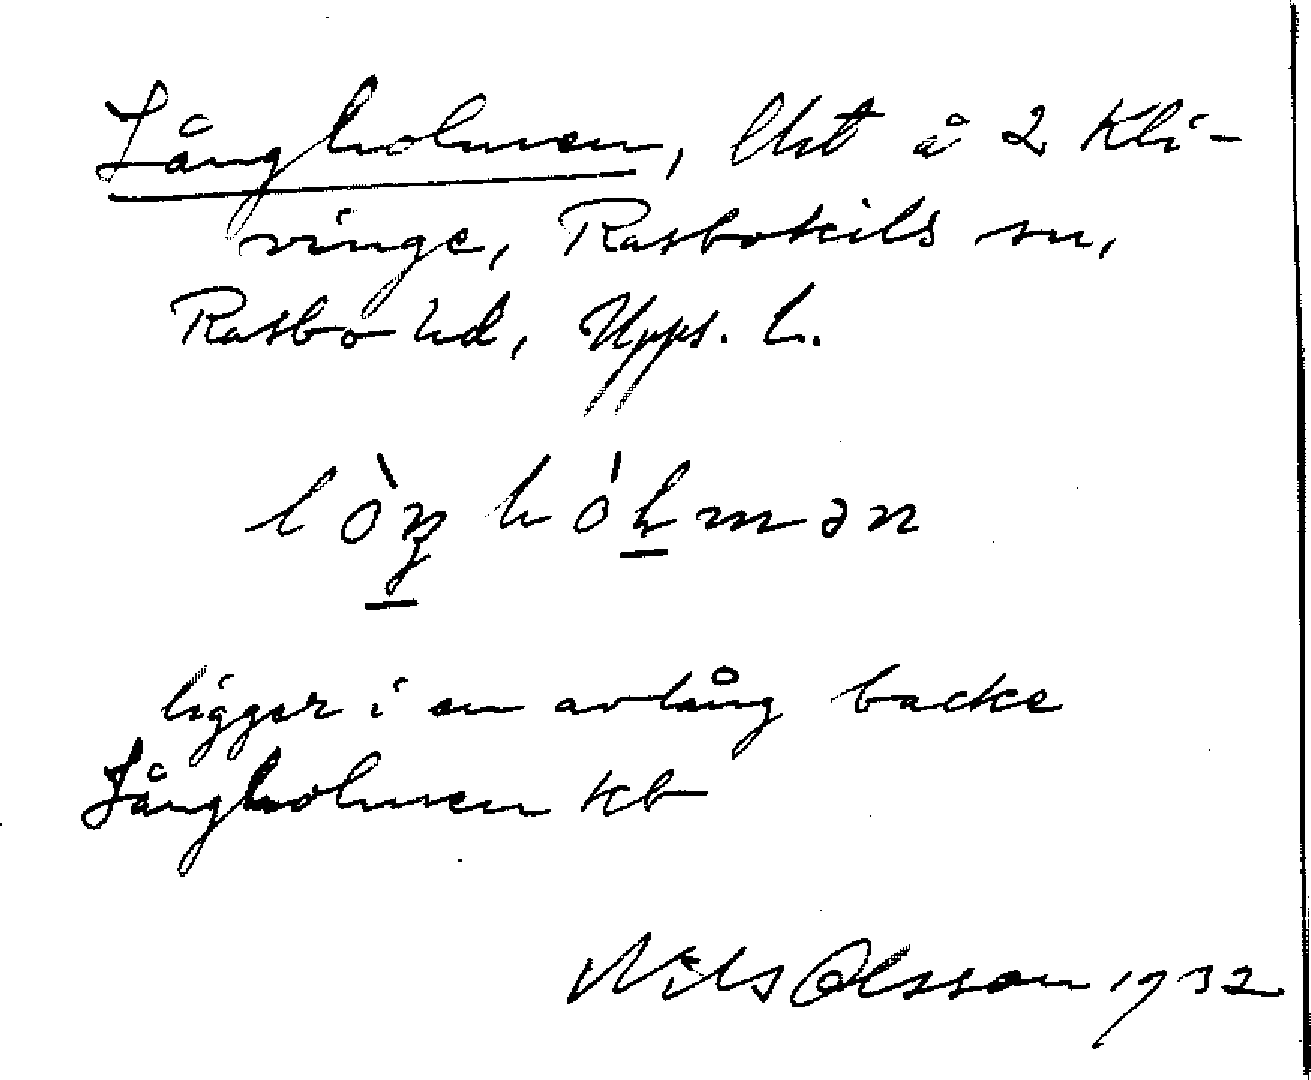 Långholmen, lht å 2 Kli-
vinge, Rasbokils sn,
Rasbo hd, Upps. L.
lòŋ hólmən
ligger i en avlång backe
Långholmen kb
Nils Olsson 1932